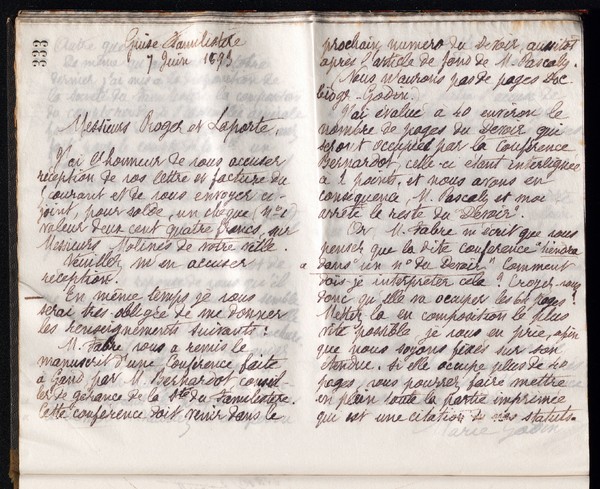 333
Guise Familistère
7 Juin 1893
Messieurs Roger et Laporte,
J'ai l'honneur de vous accuser
réception de vos lettre et facture du
courant et de vous envoyer ci-
joint, pour solde, un chèque
valeur deux cent quatre francs, sur
Messieurs Molines de votre ville.
Veuillez m'en accuser
réception.
En même temps je vous
serai très obligée de me donner
les renseignements suivants :
M. Fabre vous a remis le
manuscrit d'une Conférence faite
à Gand par M. Bernardot conseil-
ler de gérance de la Sté du Familistère.
Cette conférence doit venir dans le
prochain numéro du Devoir, aussitôt
après l'article de fond de M. Pascaly.
Nous n'aurons pas de pages Doc.
biogr. Godin.
J'ai évalué à 40 environ le
nombre de pages du Devoir qui
seront occupées par la Conférence
Bernardot, celle-ci étant interlignée
à 2 points, et nous avons en
conséquence, M. Pascaly et moi
arrêté le reste du "Devoir".
Or M. Fabre m'écrit que vous
pensez que la dite conférence "tiendra
dans un n° du Devoir" Comment
dois-je interpréter cela ? Croyez-vous
donc qu'elle va occuper les 64 pages ?
Mettez la en composition le plus
vite possible je vous en prie, afin
que nous soyons fixés sur son
étendue. Si elle occupe plus de 40
pages, vous pourrez faire mettre
en plein toute la partie imprimée
qui est une citation de nos statuts.
Marie Godin